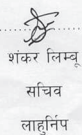 शंकर लिम्बू
सचिव
लाहुर्निप